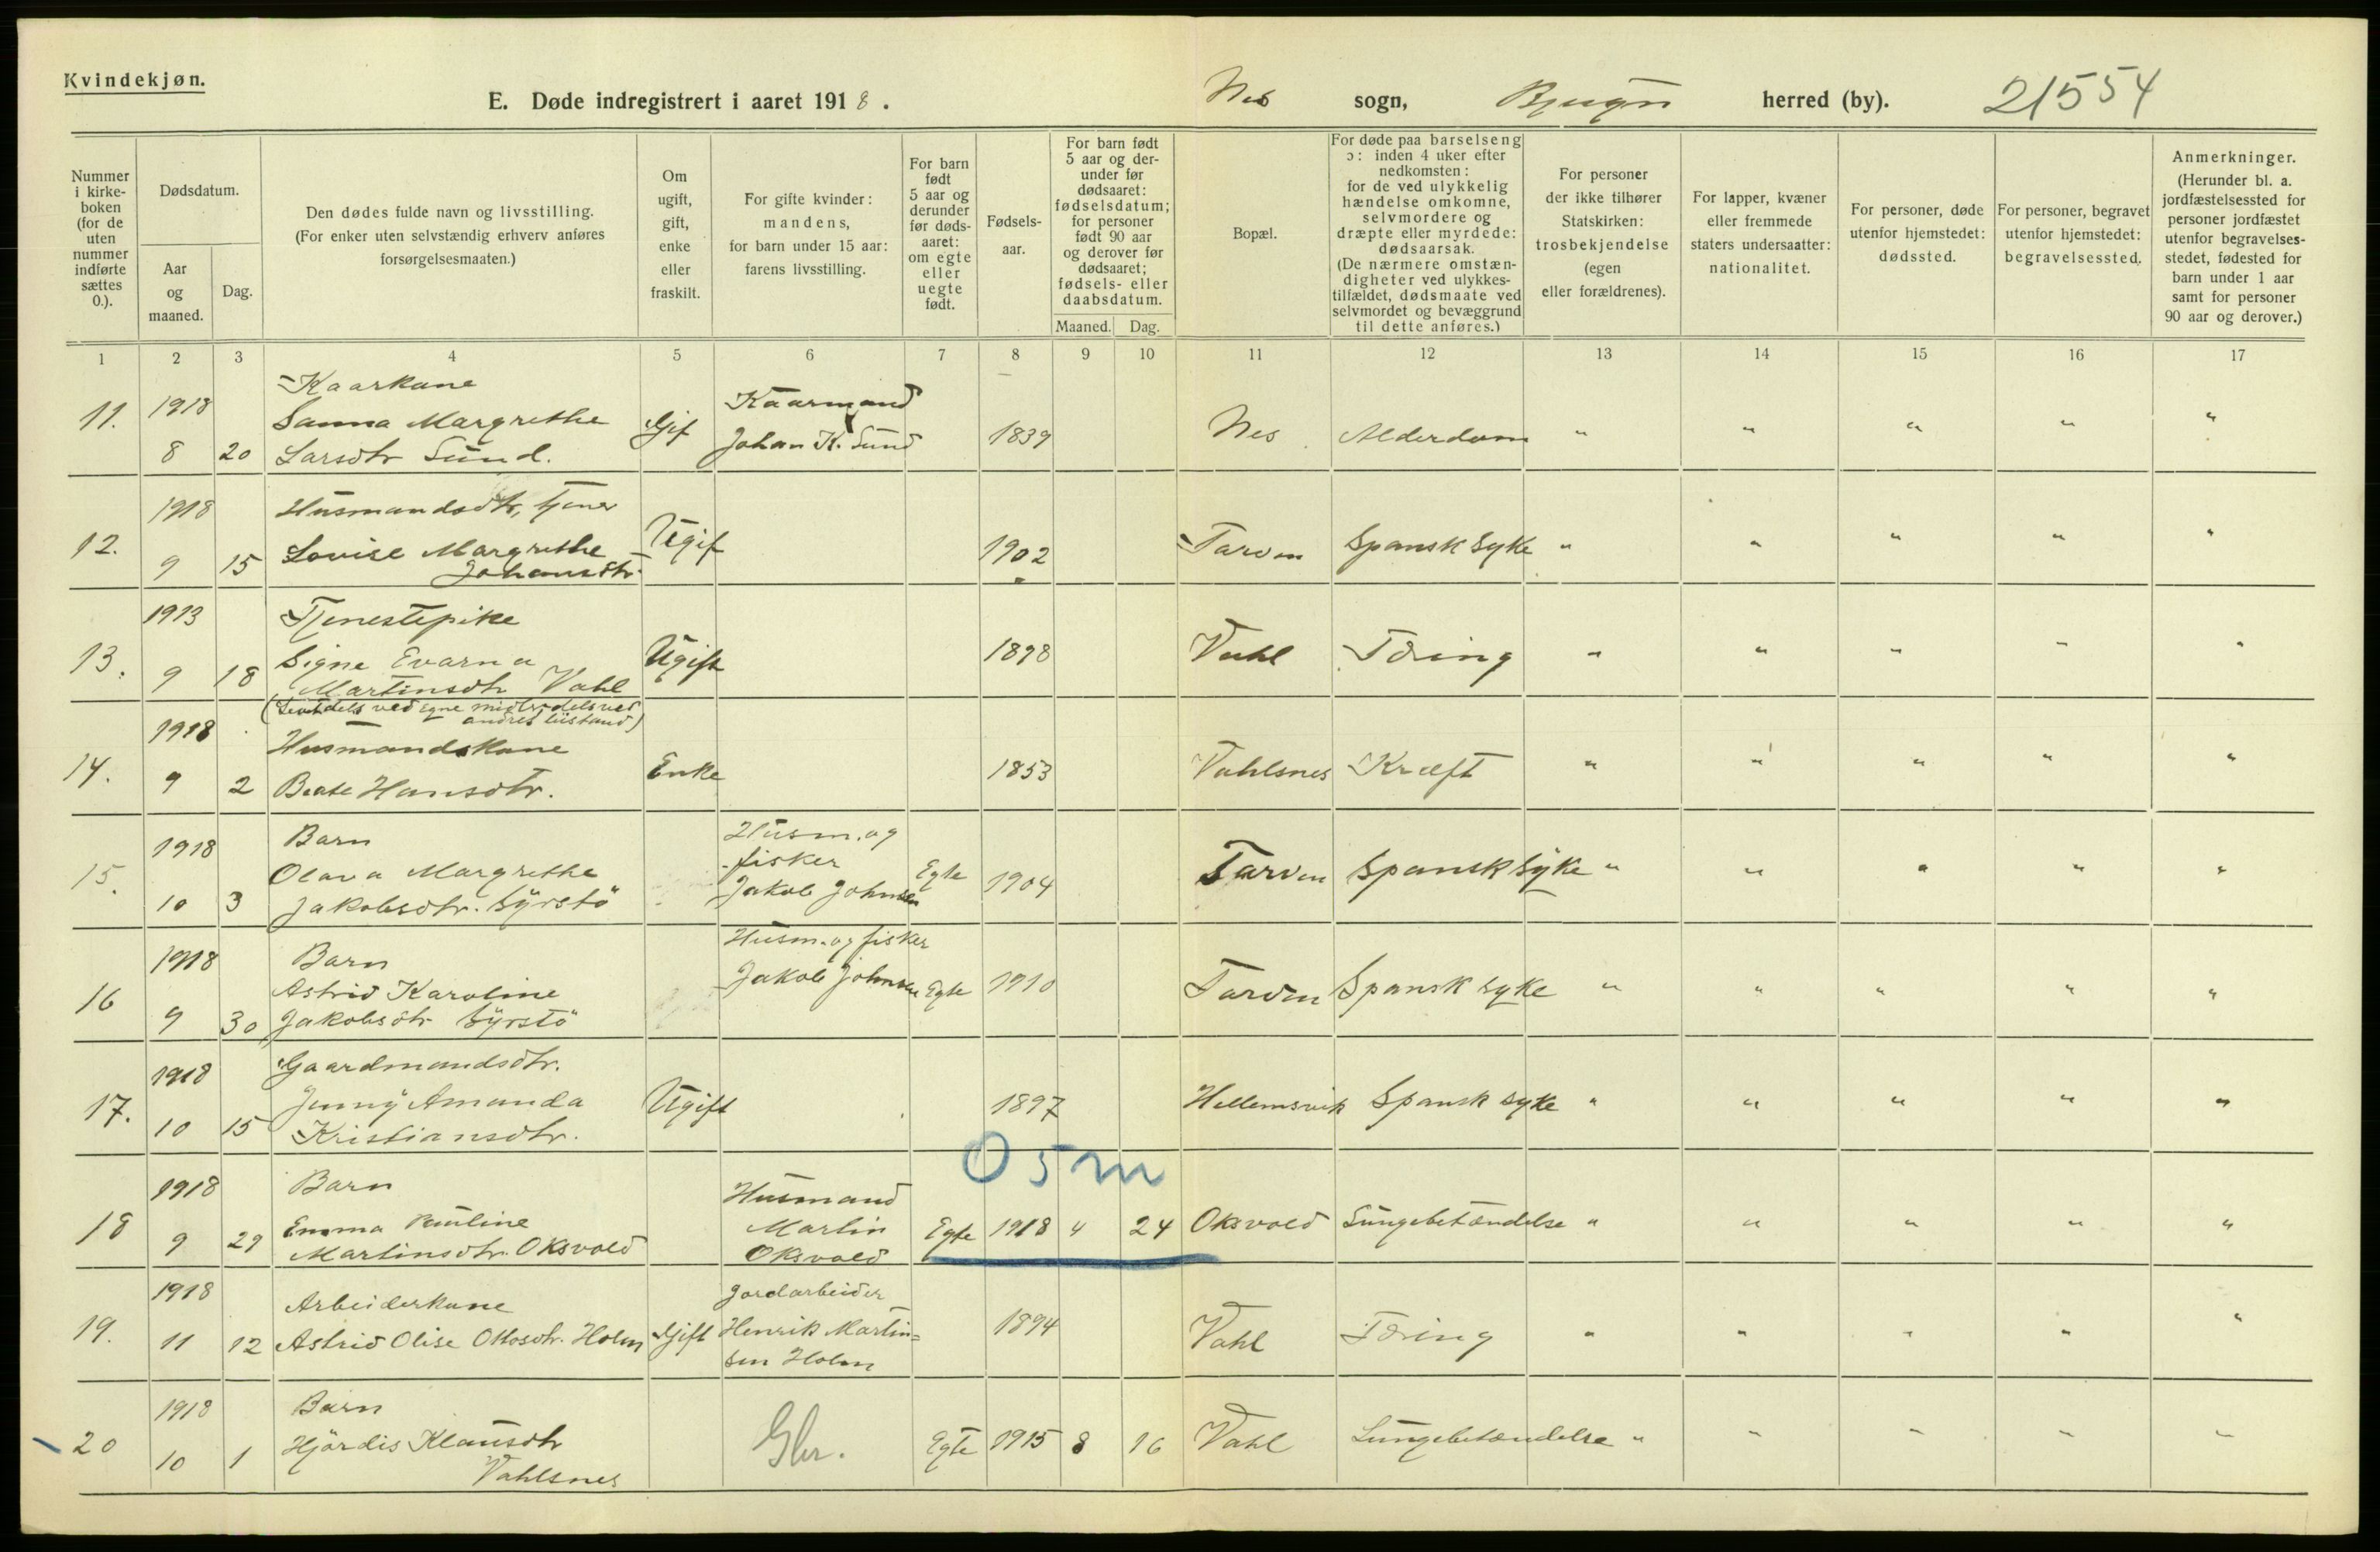 Kvindekjøn.
E. Døde indregistrert i aaret 1918.
Nes sogn, Bjugn herred (by). 21554
Nummer i kirkeboken (for de uten nummer indførte sættes 0.).
Dødsdatum.
Aar og maaned.
Dag.
Den dødes fulde navn og livsstilling.
(For enker uten selvstændig erhverv anføres forsørgelsesmaaten.)
Om ugift, gift, enke eller fraskilt.
For gifte kvinder: mandens, for barn under 15 aar: farens livsstilling.
For barn født 5 aar og derunder før dødsaaret: om egte eller uegte født.
Fødselsaar.
For barn født 5 aar og derunder før dødsaaret: fødselsdatum; for personer født 90 aar og derover før dødsaaret; fødsels- eller daabsdatum.
Maaned. Dag.
Bopæl.
For døde paa barselseng ɔ: inden 4 uker efter nedkomsten: for de ved ulykkelig hændelse omkomne, selvmordere og dræpte eller myrdede: dødsaarsak.
(De nærmere omstændigheter ved ulykkestilfældet, dødsmaate ved selvmordet og bevæggrund til dette anføres.)
For personer der ikke tilhører Statskirken: trosbekjendelse (egen eller forældrenes).
For lapper, kvæner eller fremmede staters undersaatter: nationalitet.
For personer, døde utenfor hjemstedet: dødssted.
For personer, begravet utenfor hjemstedet: begravelsessted.
Anmerkninger.
(Herunder bl. a. jordfæstelsessted for personer jordfæstet utenfor begravelsesstedet, fødested for barn under 1 aar samt for personer 90 aar og derover.)
1 2 3 4 5 6 7 8 9 10 11 12 13 14 15 16 17
Kaarkone Kaarmand
11. 1918 Sanna Margrethe Gif Nes Alderdom " " " " "
8 20 Larsdtr Sund. Johan K. Sund 1839
1918 Husmandsdtr, tjener
12. Lovise Margrethe Ugif 1902 Tarven Spansk Syke " " " " "
9 15 Johansdtr.
1913 Tjenestepike
13. Signe Evarna Ugift 1898 Vahl Tæring " " " " "
9 18 Martinsdtr Vahl
(Levet dels ved egne midler dels ved
andres bistand)
1918 Husmandskone
14. 9 2 Beate Hansdtr. Enke 1853 Vahlsnes Kræft " " " " "
1918 Barn Husm. og
15. Olava Margrethe fisker Egte 1904 Tarven Spansk Syke " " " " "
10 3 Jakobsdtr. Syrstö Jakob Johnsen
1918 Barn Husm. og fisker
16 Astrid Karoline Jakob Johnsen Egte 1910 Tarven Spansk syke " " " " "
9 30 Jakobsdtr Syrstö
1918 Gaardmandsdtr.
17. Jenny Amanda Ugift 1897 Hellemsvik Spansk syke " " " " "
10 15 Kristiansdtr.
0 5 m
1918 Barn Husmand
18 Emma Pauline Martin Egte 1918 4 24 Oksvold Lungebetændelse " " " " "
9 29 Martinsdtr. Oksvold Oksvold
1918 Arbeiderkone Jordarbeider
19. 11 12 Astrid Olise Ottosdtr. Holm Gift Henrik Martin= 1894 Vahl Tæring " " " " "
sen Holm
1918 Barn
20 Hjördis Klausdtr Gbr. Egte 1915 8 16 Vahl Lungebetændelse " " " " "
10 1 Vahlsnes